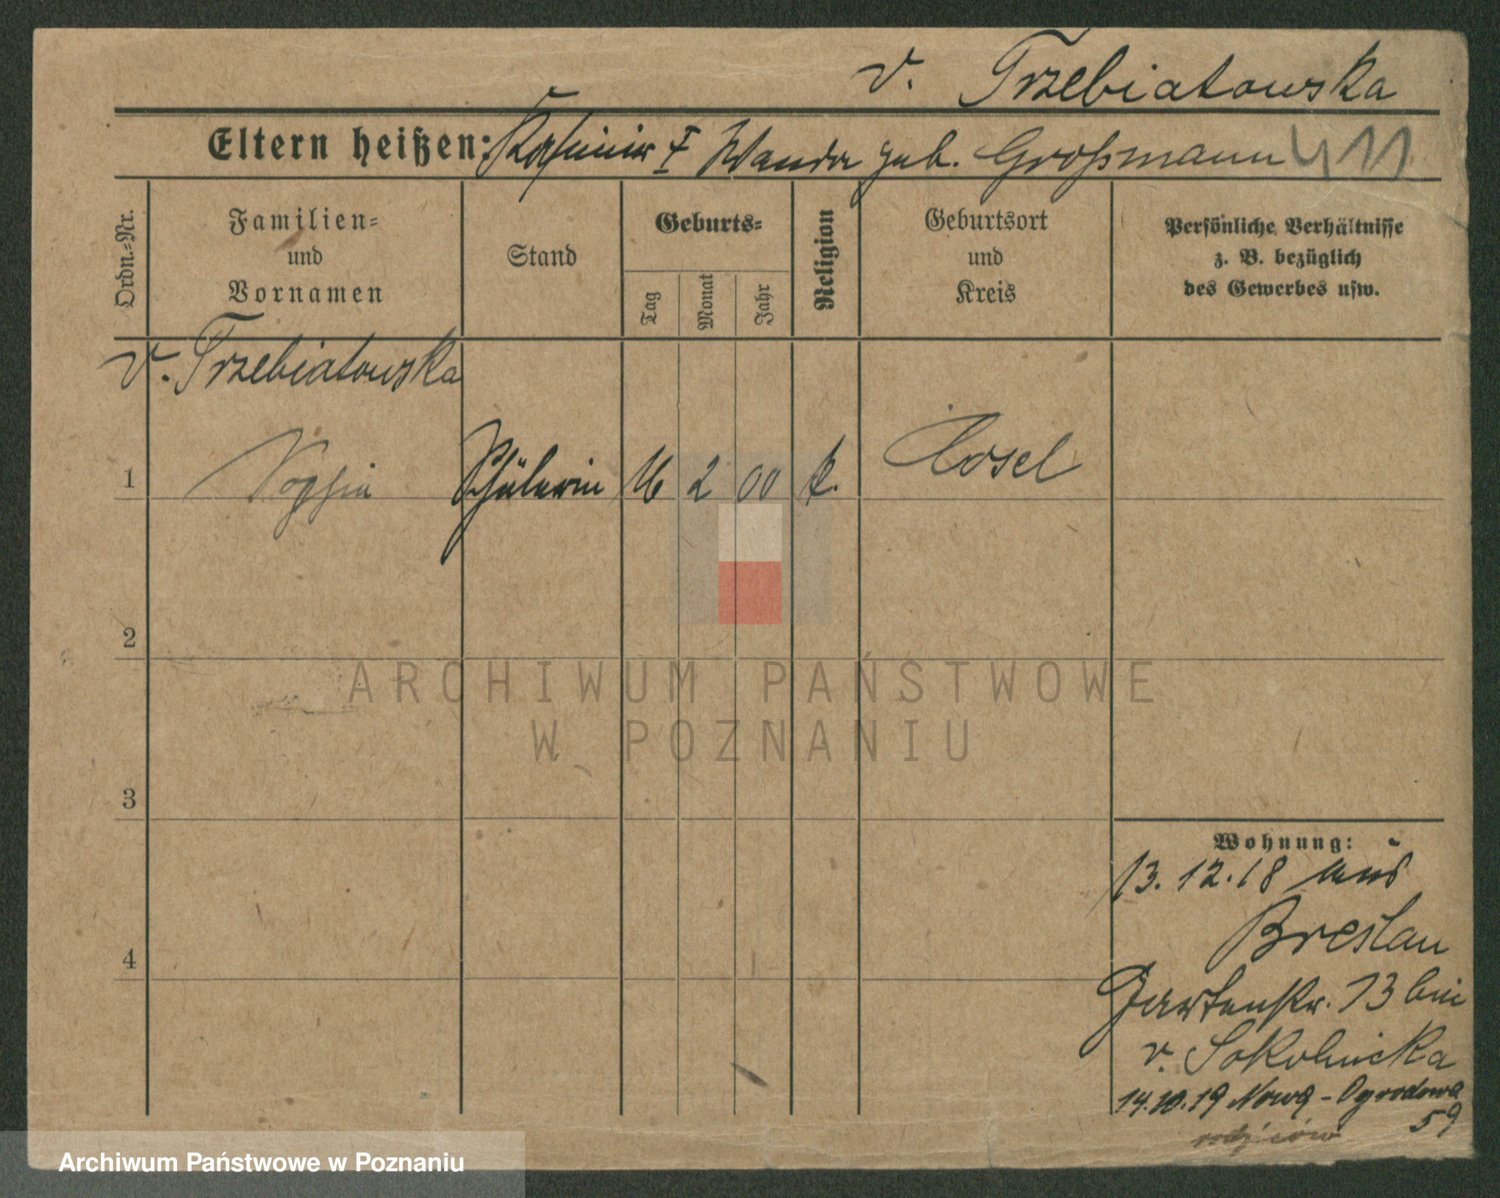 v. Trzebiatowska
Eltern heißen: Kasimir † Wanda geb. Großmann 411
Ordn.-Nr.
Familien-
und
Vornamen
Stand
Geburts-
Tag
Monat
Jahr
Religion
Geburtsort
und
Kreis
Persönliche Verhältnisse
z. B. bezüglich
des Gewerbes usw.
v. Trzebiatowska
1 Sophie Schülerin 16 2 00 k. Cosel
2
3
4
Wohnung:
13.12.18 aus
Breslau
Gartenstr. 13 bei
v. Sokolnicka
14.10.19 Nową-Ogrodowa
59
rodziców
ARCHIWUM PAŃSTWOWE
W POZNANIU
Archiwum Państwowe w Poznaniu